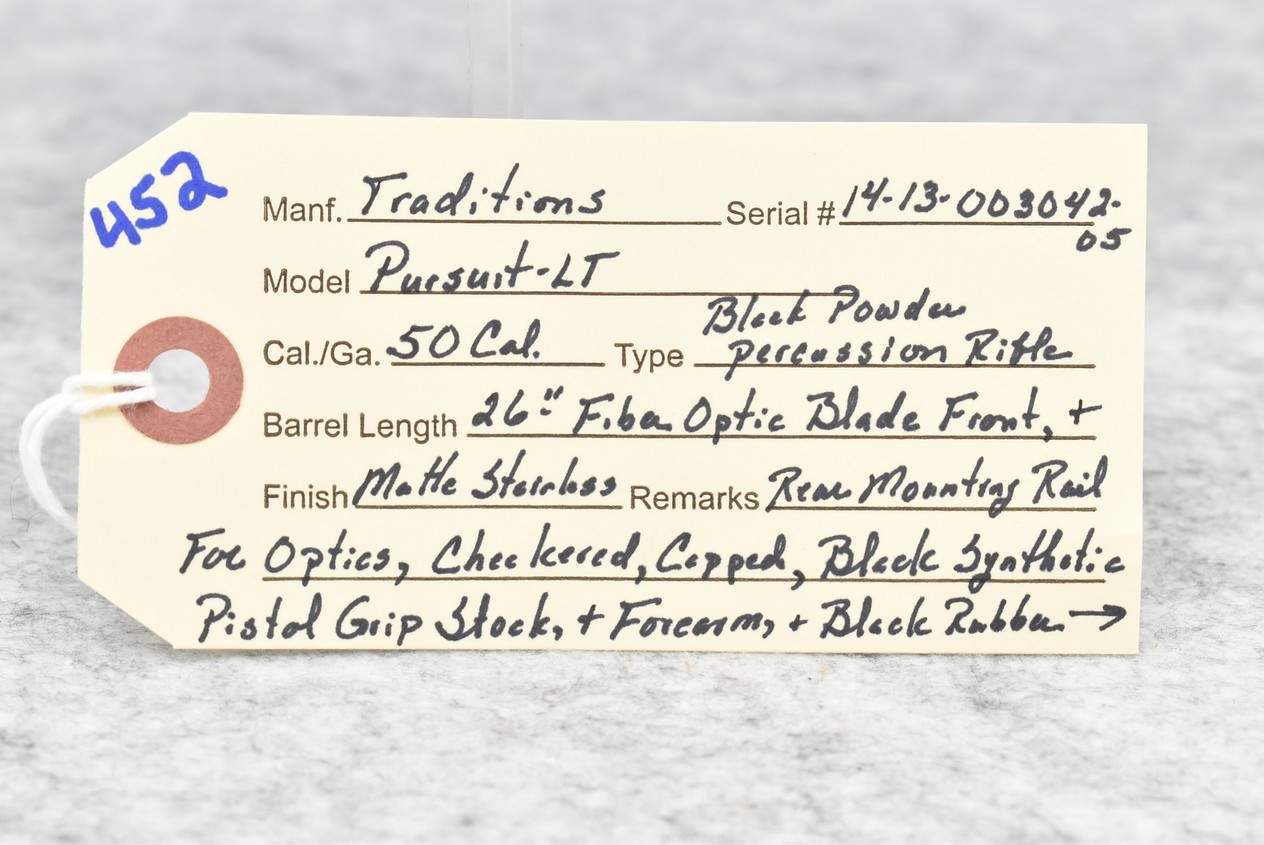 452
Manf. Traditions Serial # 14-13-003042-
05
Model Pursuit-LT
Black Powder
Cal./Ga. 50 Cal. Type percussion Rifle
Barrel Length 26" Fiber Optic Blade Front, +
Finish Matte Stainless Remarks Rear Mounting Rail
For Optics, Checkered, Capped, Black Synthetic
Pistol Grip Stock, + Forearm, + Black Rubber →